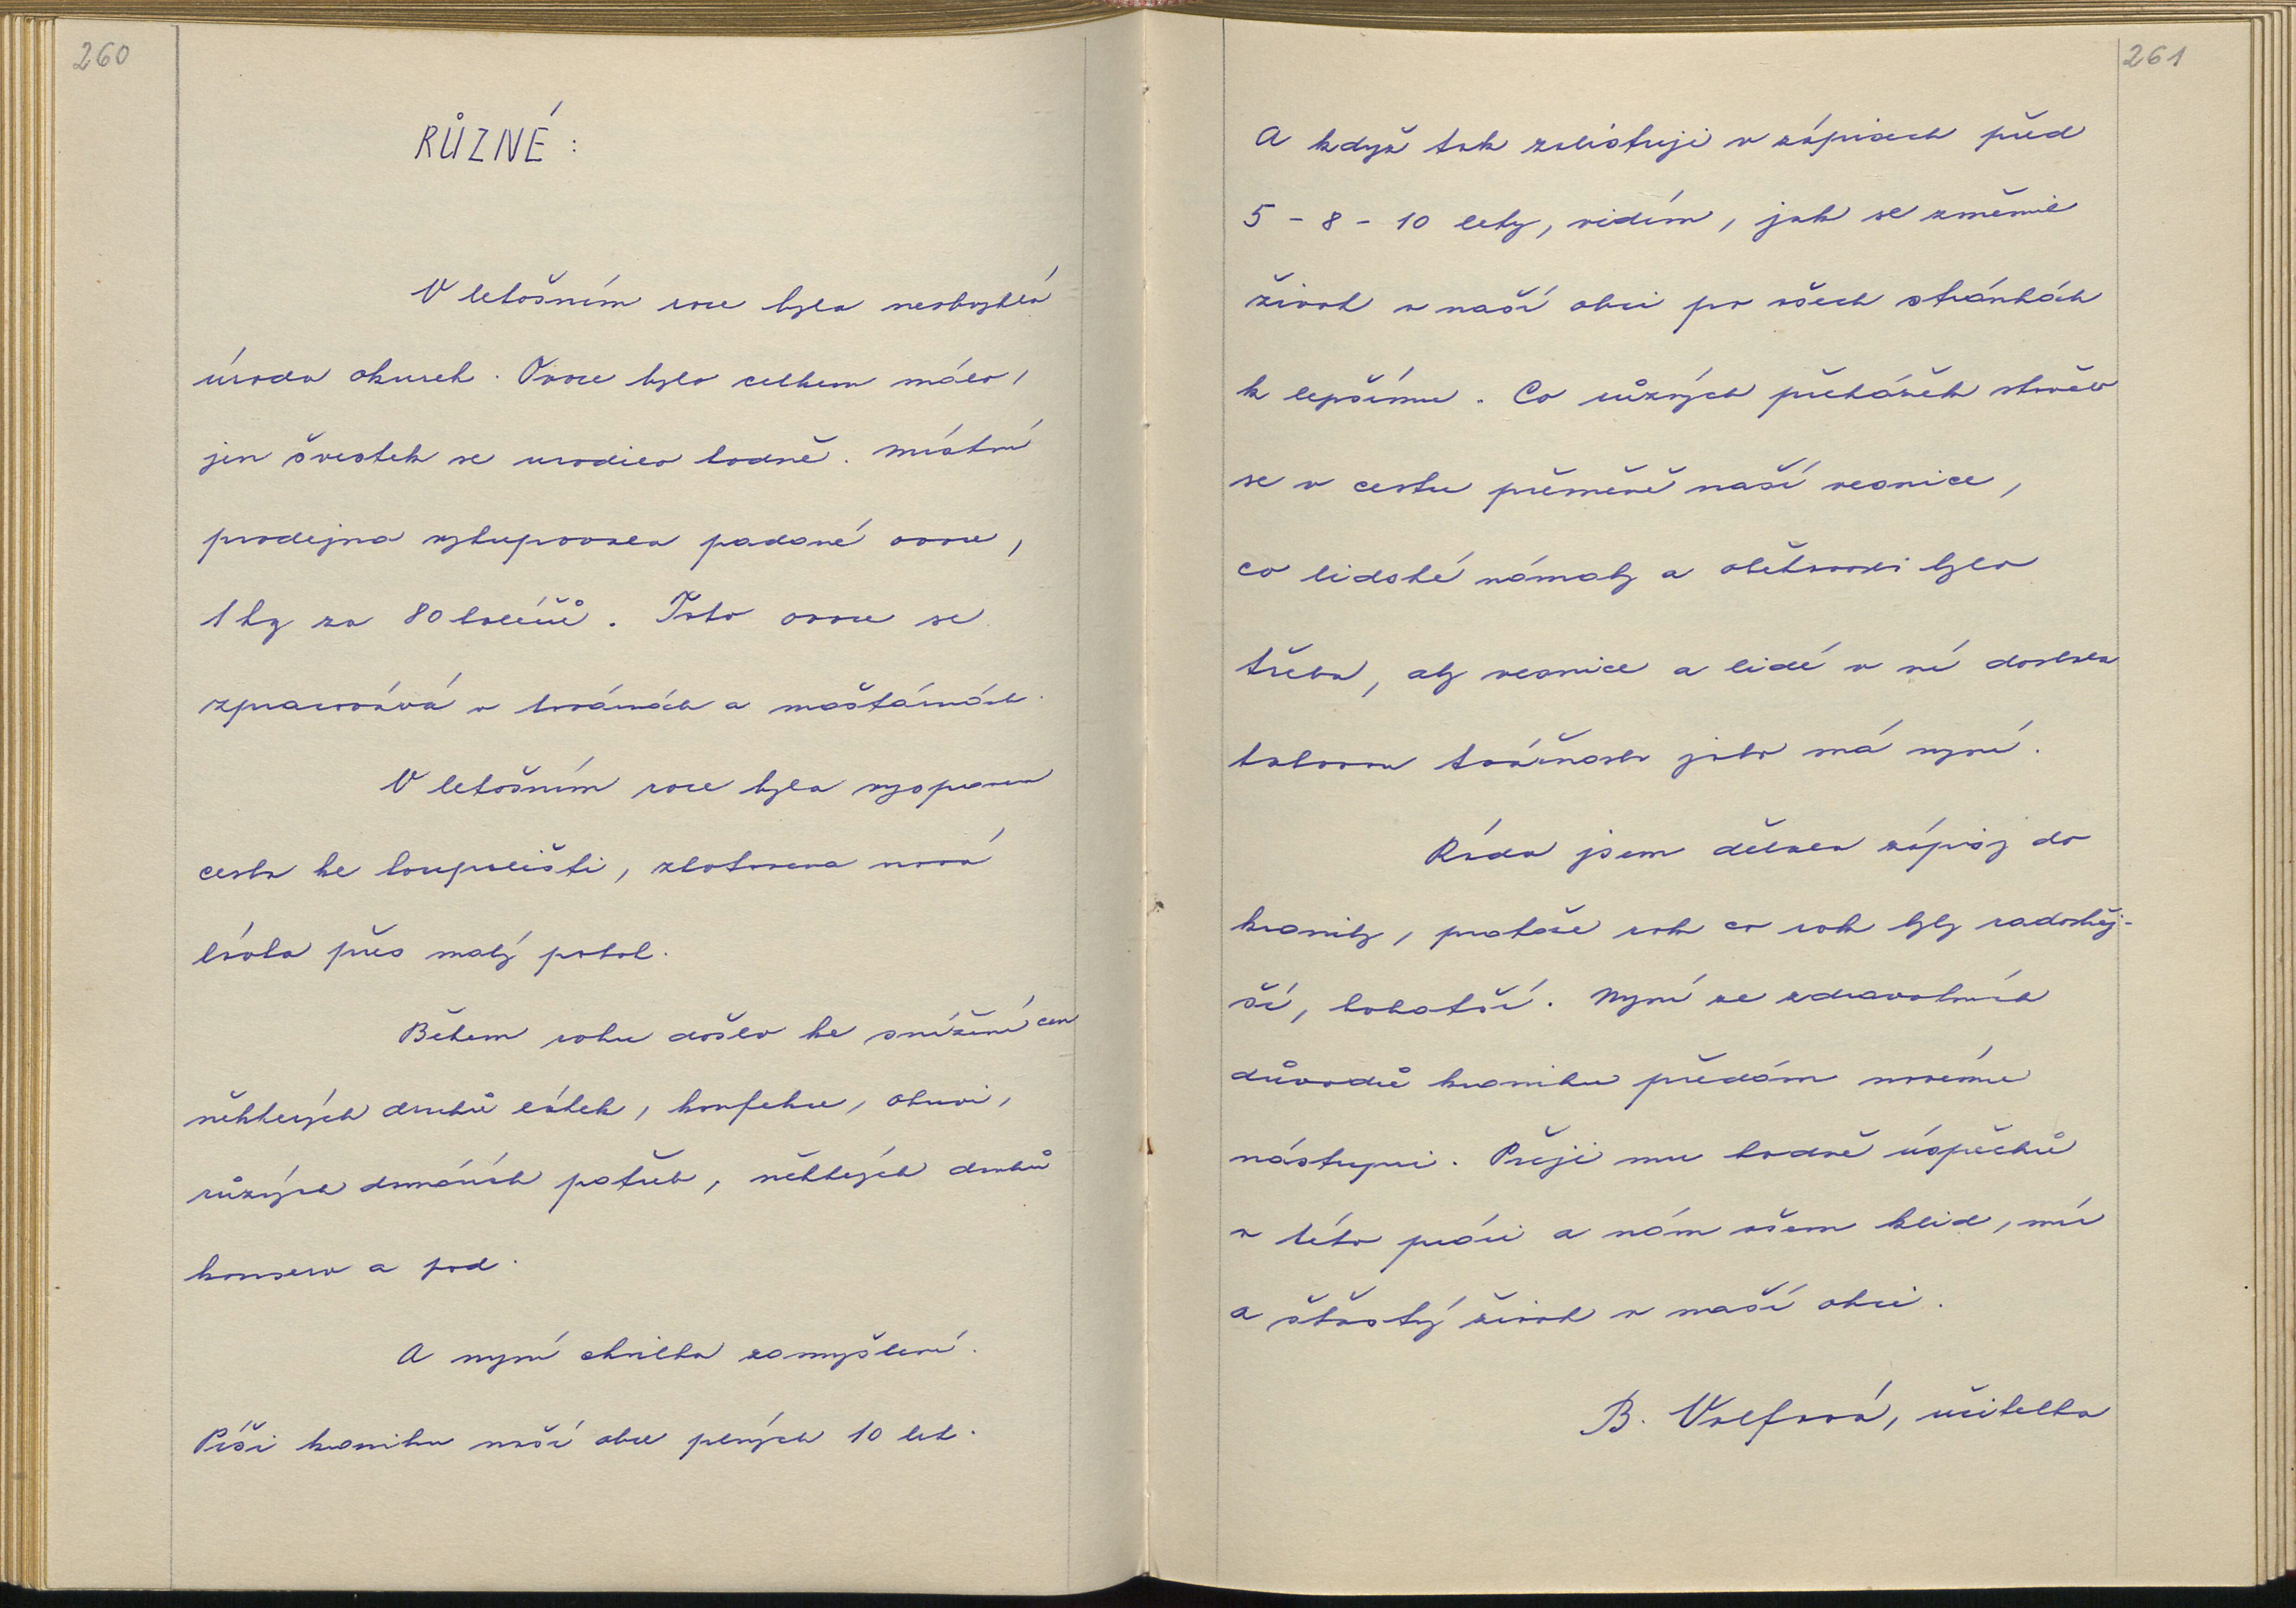 260
RŮZNÉ:
V letošním roce byla neobvyklá
úroda okurek. Ovoce bylo celkem málo,
jen švestek se urodilo hodně. Místní
prodejna vykupovala padané ovoce,
1 kg za 80 haléřů. Toto ovoce se
zpracovává v lihovárnách a moštárnách.
V letošním roce byla vyspravena
cesta ke koupališti, zhotovena nová
lávka přes malý potok.
Během roku došlo ke snížení cen
některých druhů látek, konfekce, obuvi,
různých domácích potřeb, některých druhů
konserv a pod.
A nyní chvilka zamyšlení.
Píši kroniku naší obce plných 10 let.
261
A když tak zalistuji v zápisech před
5 - 8 - 10 lety, vidím, jak se změnil
život v naší obci po všech stránkách
k lepšímu. Co různých překážek stálo
se v cestu přeměně naší vesnice,
co lidské námahy a obětavosti bylo
třeba, aby vesnice a lidé v ní dostala
takovou tvářnost jako má nyní.
Ráda jsem dělala zápisy do
kroniky, protože rok co rok byly radostněj-
ší, bohatší. Nyní ze zdravotních
důvodů kroniku předám novému
nástupci. Přeji mu hodně úspěchů
v této práci a nám všem klid, mír
a šťastný život v naší obci.
B. Volfová, učitelka